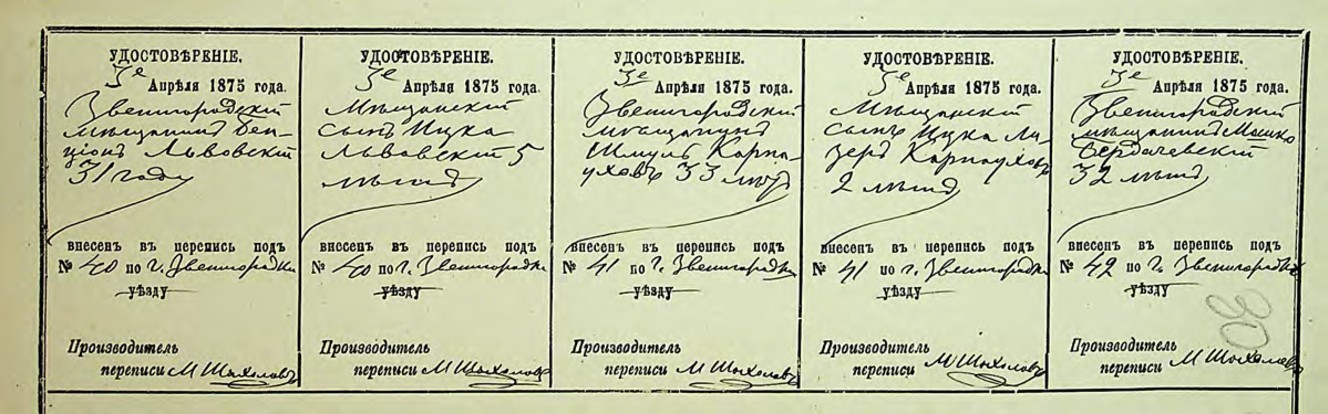 УДОСТОВѢРЕНІЕ.
3е Апрѣля 1875 года.
Звенигородскій
мѣщанинъ Бен-
ціонъ Львовскій
31 году
внесенъ въ перепись подъ
№ 40 по г. Звенигородкѣ
уѣзду
Производитель
переписи
УДОСТОВѢРЕНІЕ.
3е Апрѣля 1875 года.
Мѣщанскій
сынъ Ицка
Львовскій 5
лѣтъ
внесенъ въ перепись подъ
№ 40 по г. Звенигородкѣ
уѣзду
Производитель
переписи
УДОСТОВѢРЕНІЕ.
3е Апрѣля 1875 года.
Звенигородскій
мѣщанинъ
Шмуль Карпа-
уховъ 33 лѣтъ
внесенъ въ перепись подъ
№ 41 по г. Звенигородкѣ
уѣзду
Производитель
переписи
УДОСТОВѢРЕНІЕ.
3е Апрѣля 1875 года.
Мѣщанскій
сынъ Ицка Ли-
зеръ Карпауховъ
2 лѣтъ
внесенъ въ перепись подъ
№ 41 по г. Звенигородкѣ
уѣзду
Производитель
переписи
УДОСТОВѢРЕНІЕ.
3е Апрѣля 1875 года.
Звенигородскій
мѣщанинъ Мошко
Бердичевскій
32 лѣтъ
внесенъ въ перепись подъ
№ 42 по г. Звенигородкѣ
уѣзду
30
Производитель
переписи